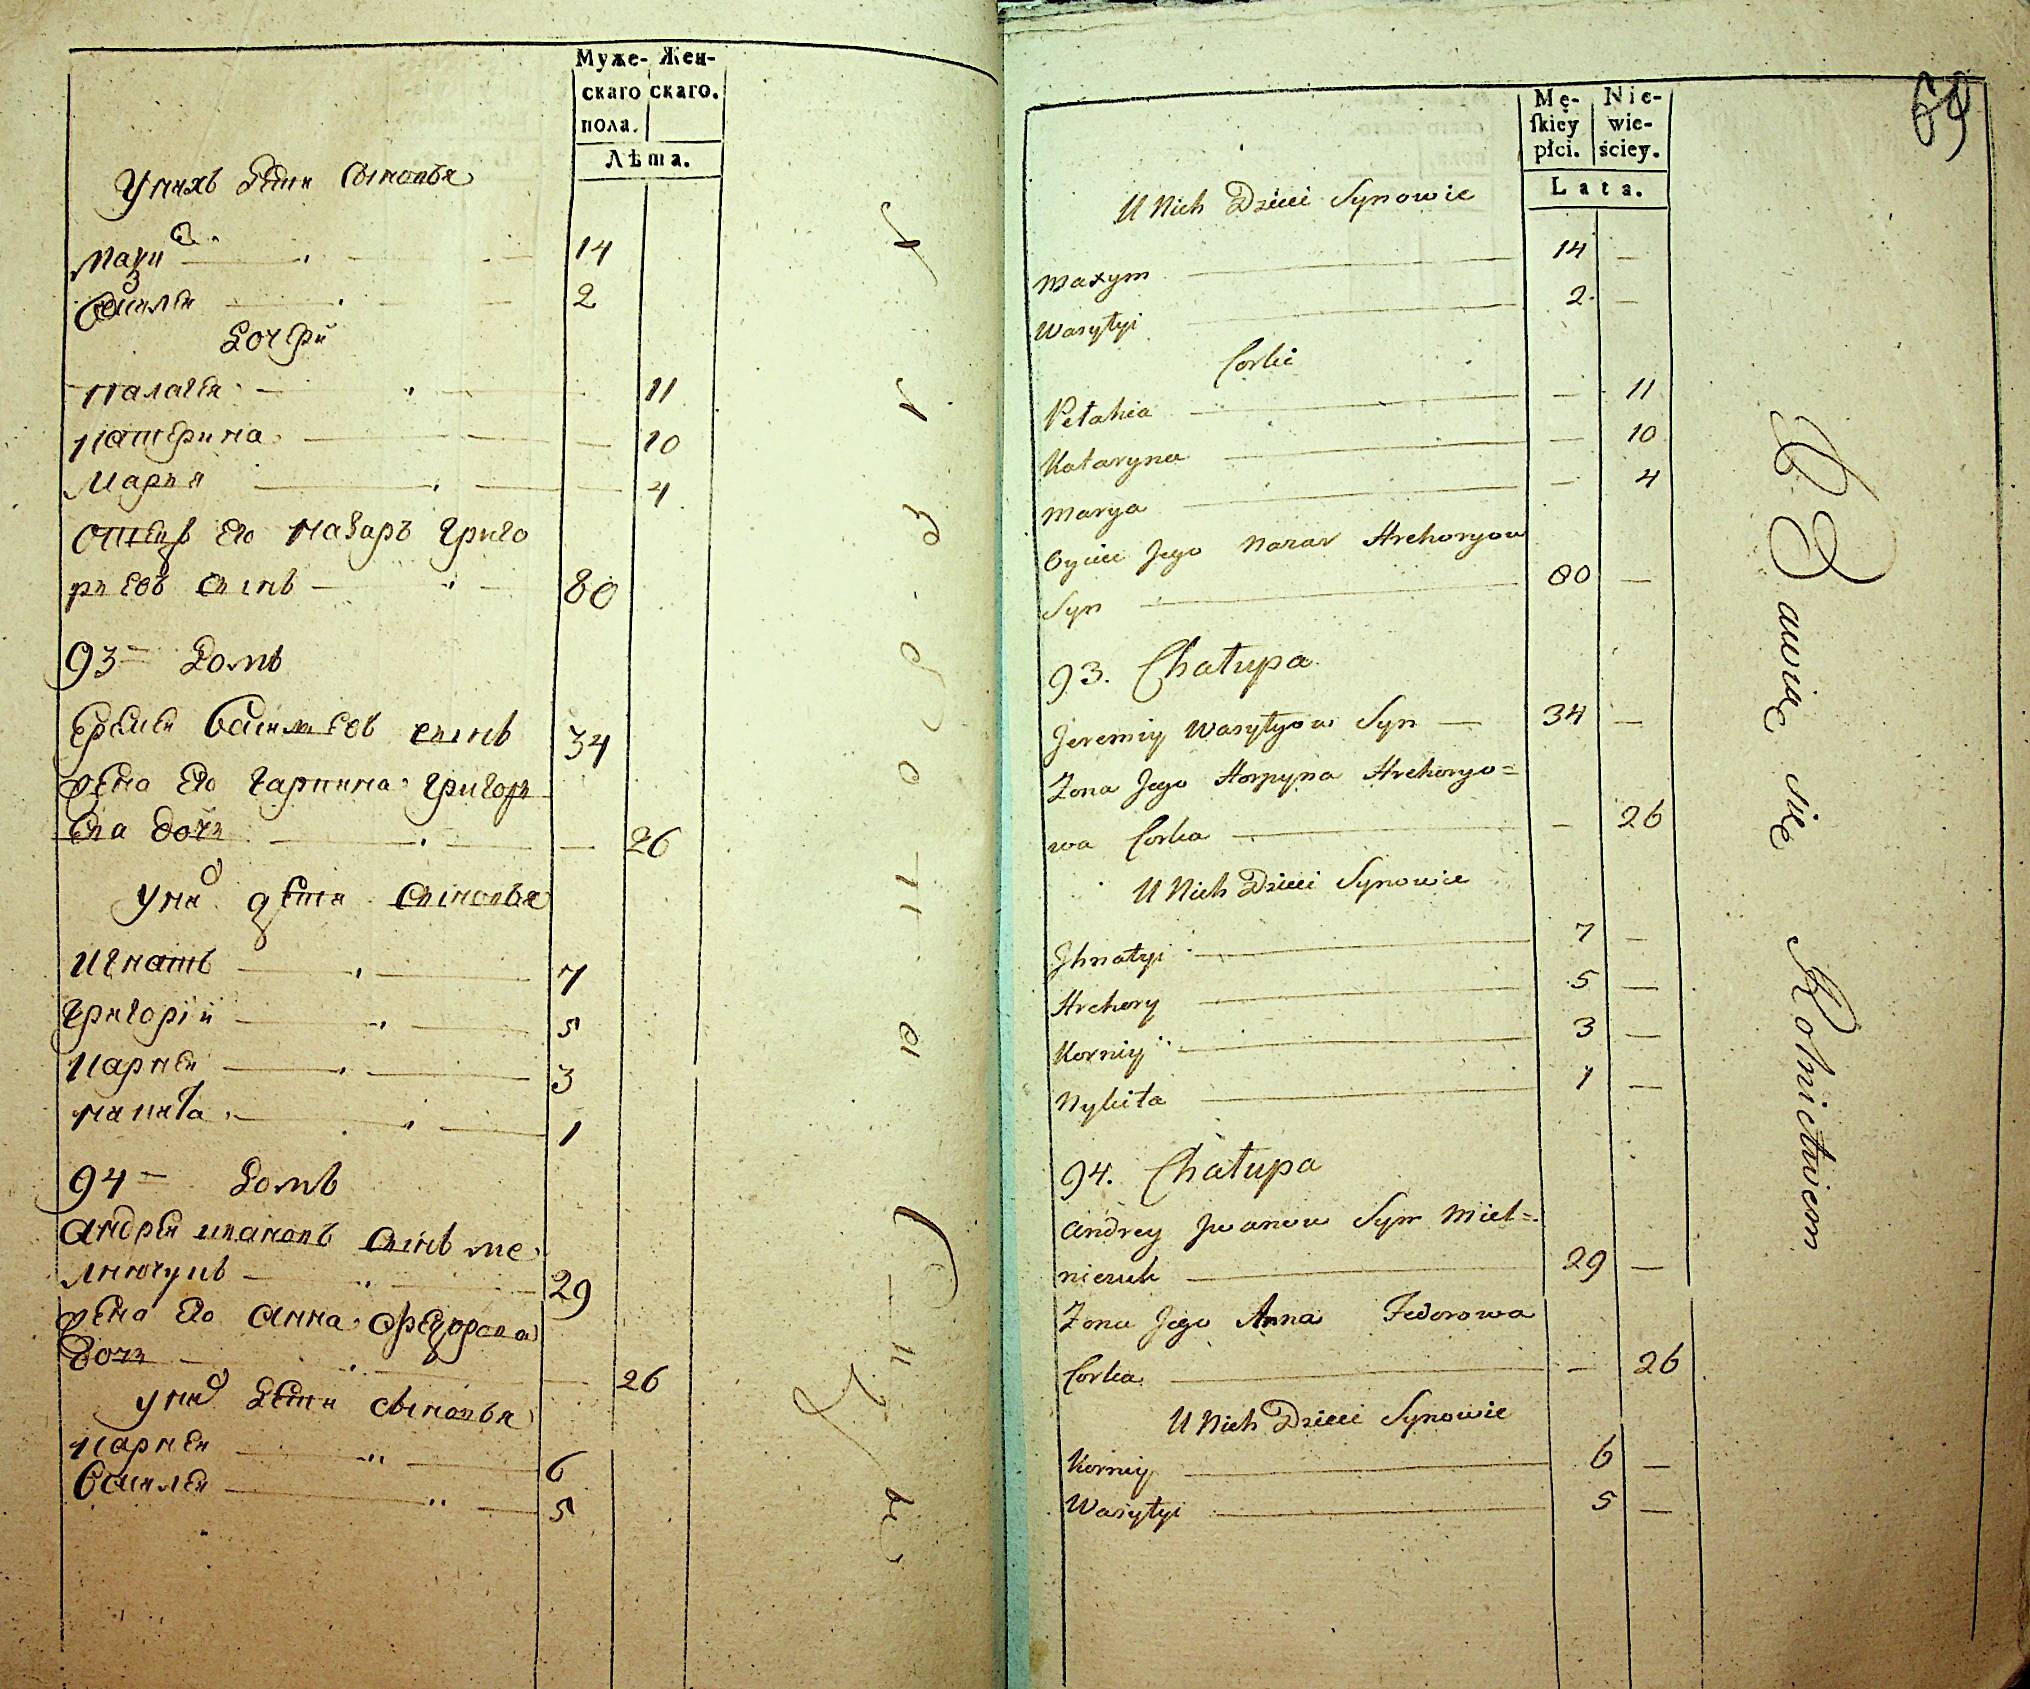 Муже- Жен-
скаго скаго.
пола.
Лѣта.
У нихъ дети сыновья
14
Василей 2
Дочери
Палагея 11
Катерина 10
Марья 4
Отецъ его Назаръ Григо
рьевъ сынъ 80
93 Домъ
Еремей Васильевъ сынъ 34
Жена его Гарпина Григорь
ева дочь 26
У них дети сыновья
Игнатъ 7
Григорій 5
Карней 3
Никита 1
94 Домъ
Андрей Ивановъ сынъ Ме
лничукъ 29
Жена его Анна Федорова
дочь 26
У них дети сыновья
Карней 6
Василей 5
69
Mę- Nie-
ſkiey wie-
płci. ściey.
Lata.
U Nich Dzieci Synowie
Maxym 14 —
Wasylyi 2 —
Corki
Pelahia — 11
Kataryna — 10
Marya — 4
Oyciec Jego Nazar Hrehoryow
Syn 80 —
93. Chałupa
Jeremiy Wasylyow Syn 34 —
Żona Jego Horpyna Hrehoryo=
wa Corka — 26
U Nich Dzieci Synowie
Jhnatyi 7 —
Hrehory 5 —
Korniy 3 —
Nykita 1 —
94. Chałupa
Andrey Jwanow Syn Miel=
niczuk 29 —
Żona Jego Anna Fedorowa
Corka — 26
U Nich Dzieci Synowie
Korniy 6 —
Wasylyi 5 —
Bawiąc się Rolnictwem